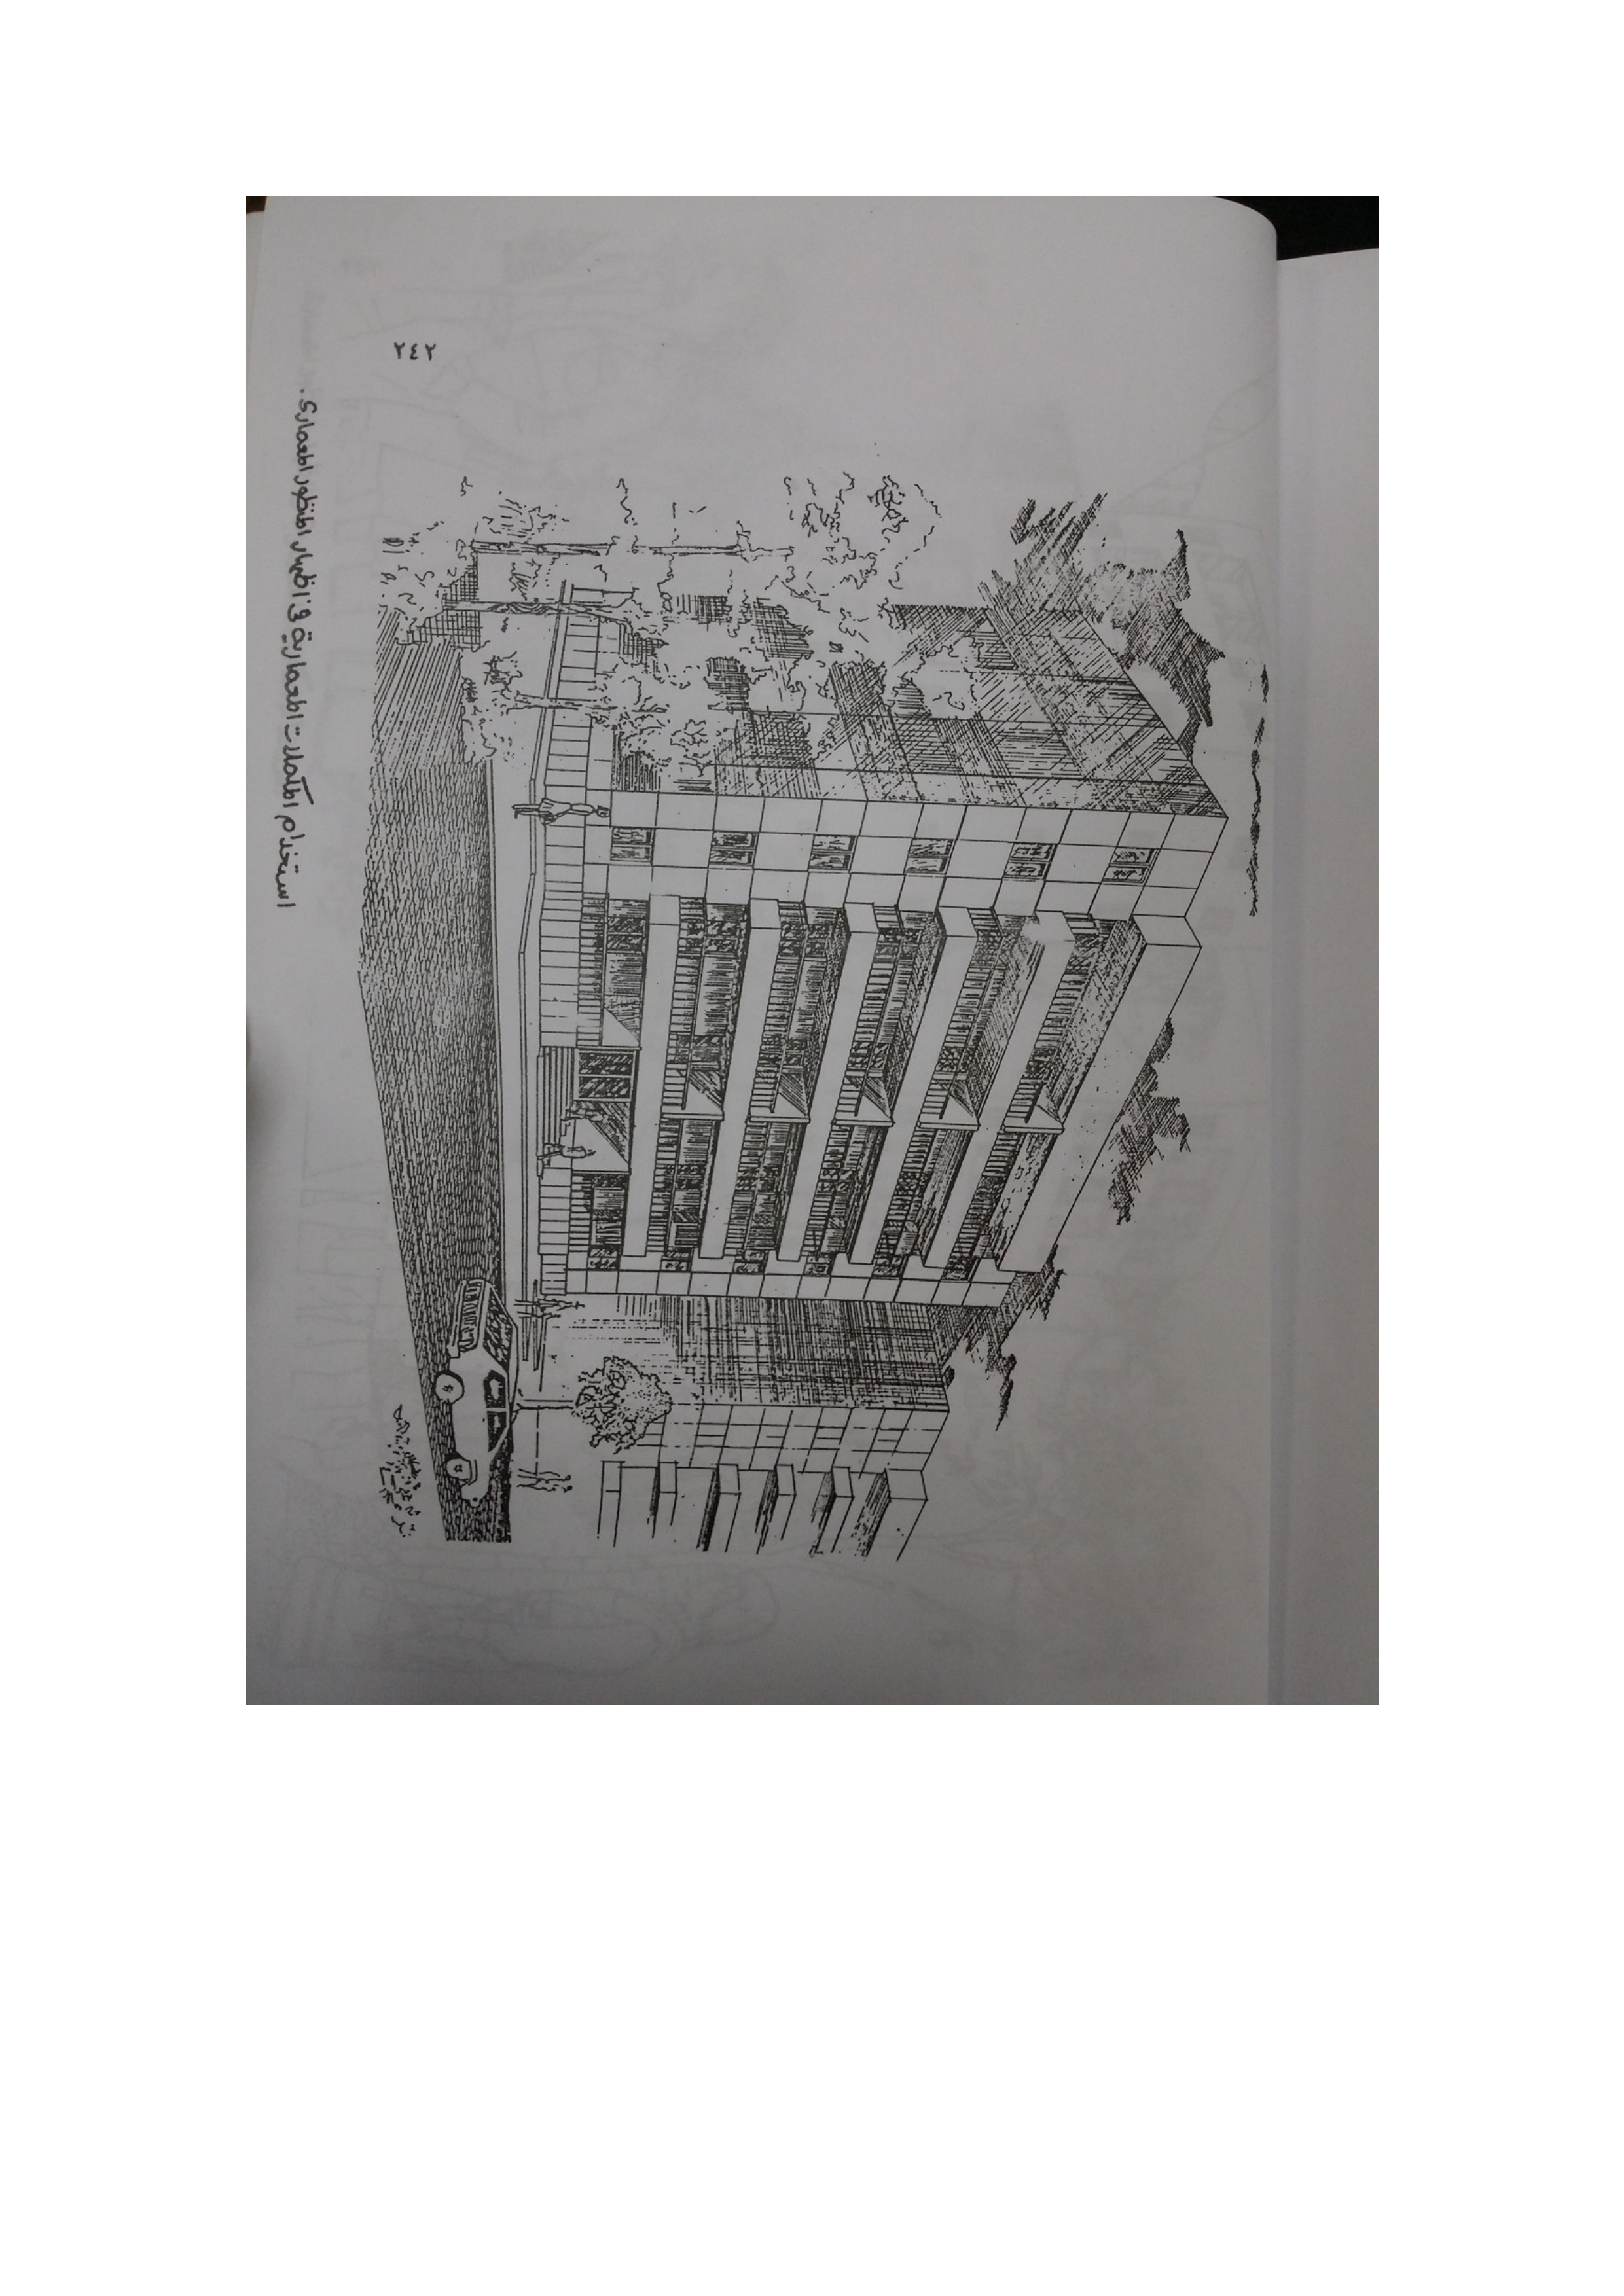 استخدام المكملات المعمارية فى اظهار المنظور المعمارى.
٢٤٢